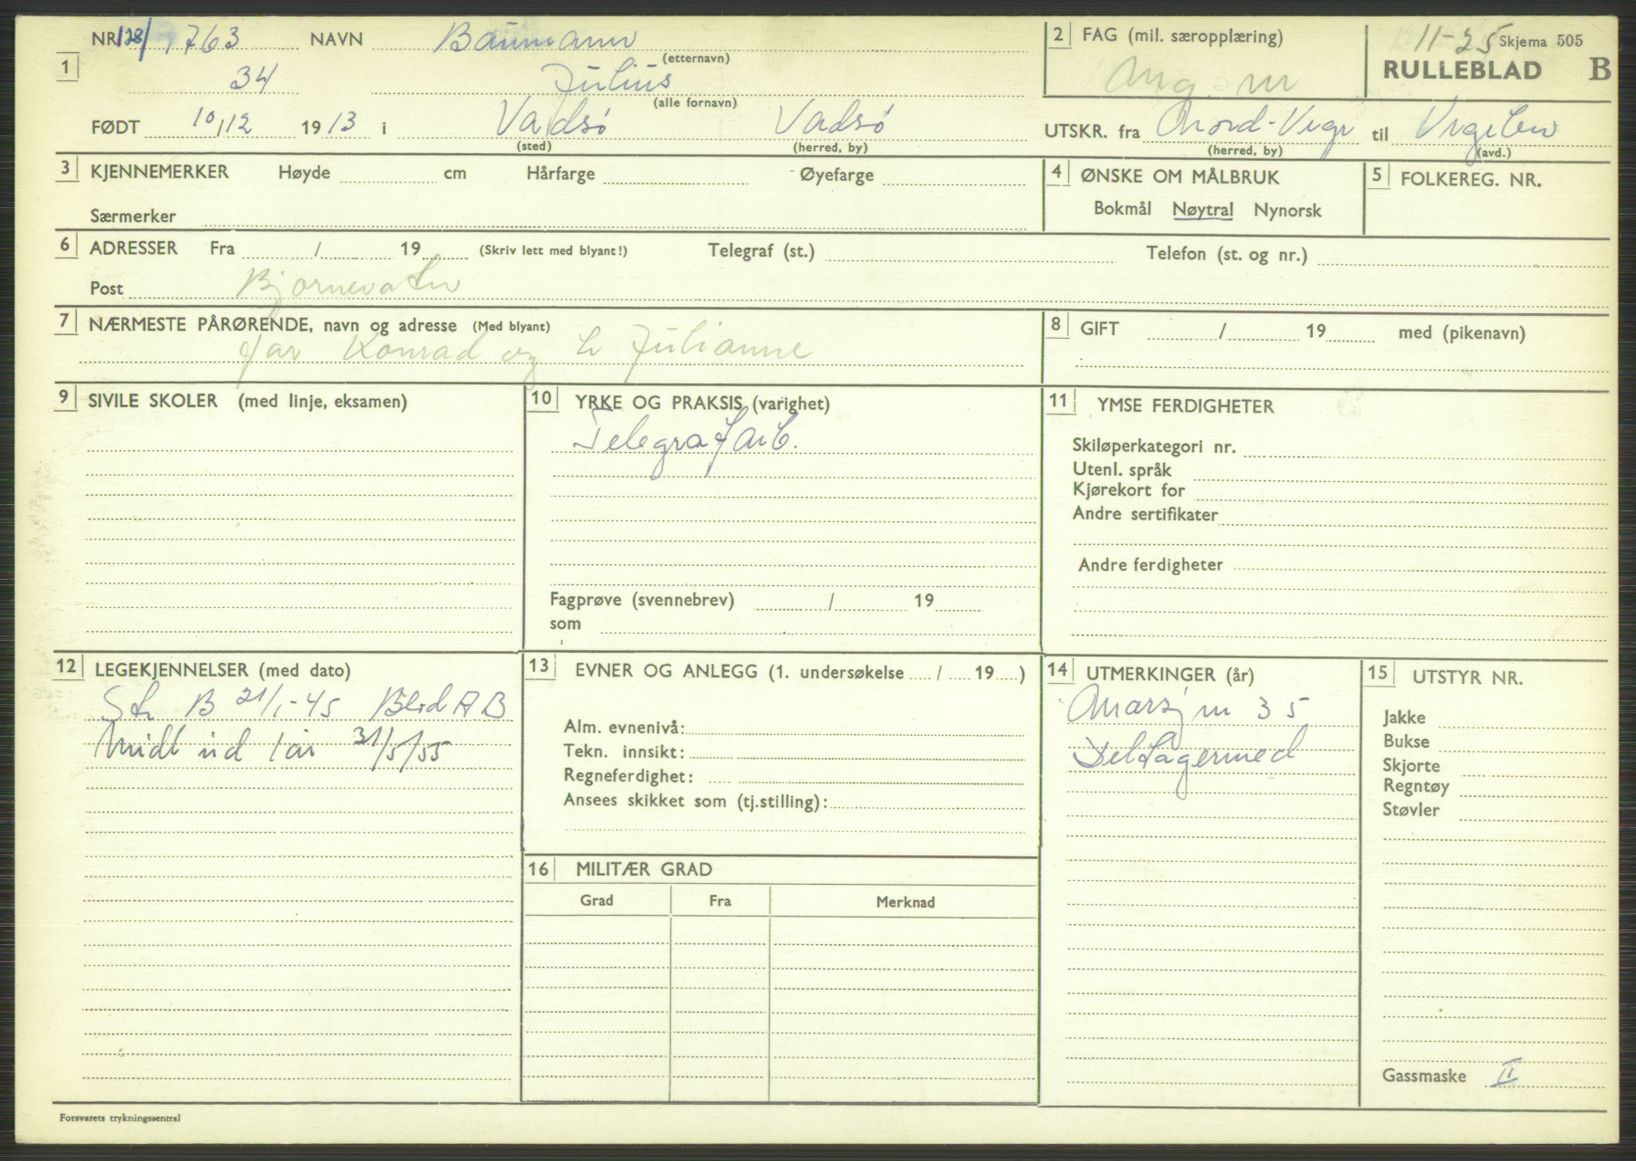 NR 128/ 1763 NAVN Baumann
(etternavn)
1 34 Julius
(alle fornavn)
FØDT 10/12 1913 i Vadsö Vadsö
(sted) (herred, by)
2 FAG (mil. særopplæring)
11-25 Skjema 505
RULLEBLAD B
UTSKR. fra til
(herred, by) (avd.)
3 KJENNEMERKER Høyde cm Hårfarge Øyefarge
Særmerker
4 ØNSKE OM MÅLBRUK
Bokmål Nøytral Nynorsk
5 FOLKEREG. NR.
6 ADRESSER Fra / 19 (Skriv lett med blyant!) Telegraf (st.) Telefon (st. og nr.)
Post Bjørnevatn
7 NÆRMESTE PÅRØRENDE, navn og adresse (Med blyant)
far Konrad og Julianne
8 GIFT / 19 med (pikenavn)
9 SIVILE SKOLER (med linje, eksamen)
10 YRKE OG PRAKSIS (varighet)
Telegrafarb.
Fagprøve (svennebrev) / 19
som
11 YMSE FERDIGHETER
Skiløperkategori nr.
Utenl. språk
Kjørekort for
Andre sertifikater
Andre ferdigheter
12 LEGEKJENNELSER (med dato)
B 21/1-45 Blod AB
Midl ud 1 år 31/5/55
13 EVNER OG ANLEGG (1. undersøkelse / 19 )
Alm. evnenivå:
Tekn. innsikt:
Regneferdighet:
Ansees skikket som (tj.stilling):
14 UTMERKINGER (år)
Marsjm 35
Deltagermed
15 UTSTYR NR.
Jakke
Bukse
Skjorte
Regntøy
Støvler
Gassmaske II
16 MILITÆR GRAD
Grad Fra Merknad
Forsvarets trykningssentral